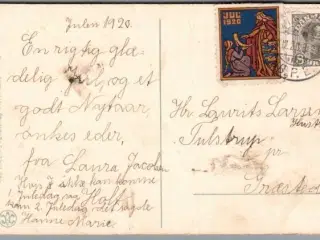 Julen 1920.
En rigtig glæ
delig Jul, og et
godt Nytaar,
ønskes eder,
fra Laura Jacobsen
Hvis I ikke kan komme
1 Juledag og Holt
2 Juledag det
Hanne Marie.
JUL
1920
Hr. Laurits Larsen
Tulstrup
pr
Græsted